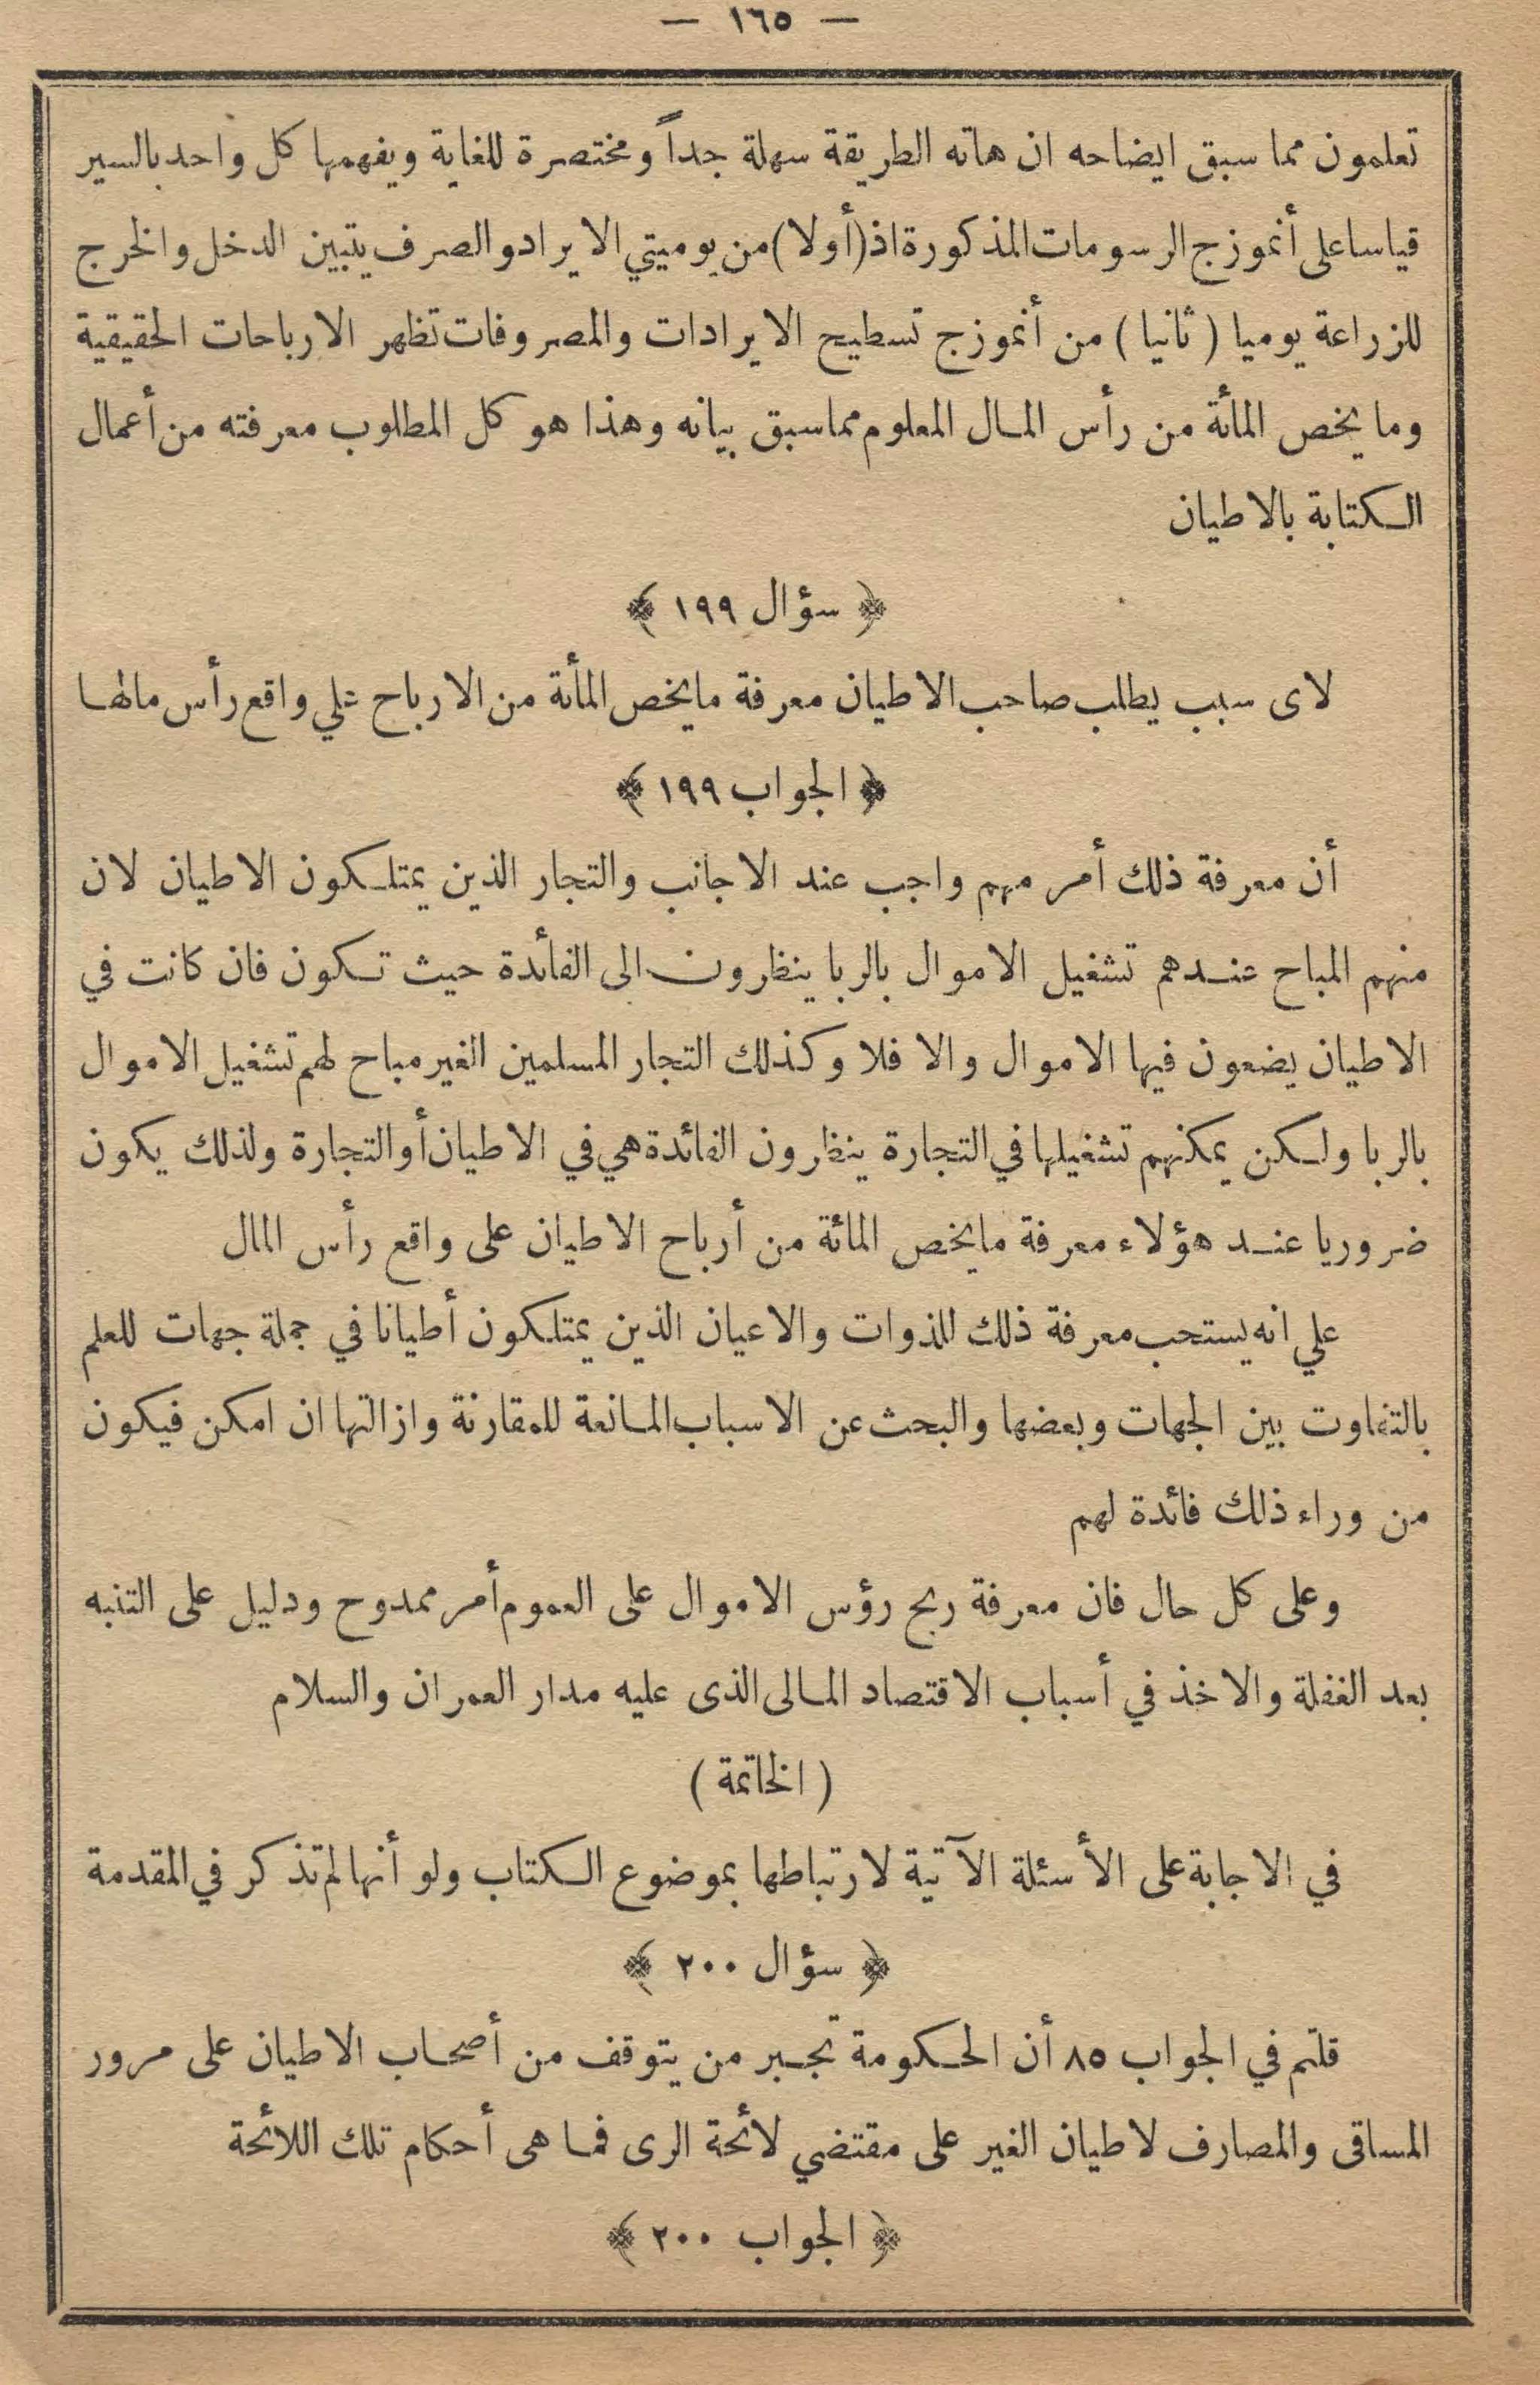 — ١٦٥ —
تعلمون مما سبق ايضاحه ان هاته الطريقة سهلة جداً ومختصرة للغاية ويفهمها كل واحد بالسير
قياسا على أنموزج الرسومات المذكورة اذ (أولا) من يوميتي الايراد والصرف يتبين الدخل والخرج
للزراعة يوميا ( ثانيا ) من أنموزج تسطيح الايرادات والمصروفات تظهر الارباحات الحقيقية
وما يخص المائة من رأس المال المعلوم مما سبق بيانه وهذا هو كل المطلوب معرفته من أعمال
الكتابة بالاطيان
﴿ سؤال ١٩٩ ﴾
لاى سبب يطلب صاحب الاطيان معرفة ما يخص المأئة من الارباح على واقع رأس مالها
﴿ الجواب ١٩٩ ﴾
أن معرفة ذلك أمر مهم واجب عند الاجانب والتجار الذين يمتلكون الاطيان لان
منهم المباح عندهم تشغيل الاموال بالربا ينظرون الى الفائدة حيث تكون فان كانت في
الاطيان يضعون فيها الاموال والا فلا وكذلك التجار المسلمين الغير مباح لهم تشغيل الاموال
بالربا ولكن يمكنهم تشغيلها في التجارة ينظرون الفائدة هي في الاطيان أو التجارة ولذلك يكون
ضروريا عند هؤلاء معرفة ما يخص المائة من أرباح الاطيان على واقع رأس المال
علي انه يستحب معرفة ذلك للذوات والاعيان الذين يمتلكون أطيانا في جملة جهات للعلم
بالتفاوت بين الجهات وبعضها والبحث عن الاسباب المانعة للمقارنة وازالتها ان امكن فيكون
من وراء ذلك فائدة لهم
وعلى كل حال فان معرفة ربح رؤس الاموال على العموم أمر ممدوح ودليل على التنبه
بعد الغفلة والاخذ في أسباب الاقتصاد المالى الذى عليه مدار العمران والسلام
( الخاتمة )
في الاجابة على الأسئلة الآتية لارتباطها بموضوع الكتاب ولو أنها لم تذكر في المقدمة
﴿ سؤال ٢٠٠ ﴾
قلتم في الجواب ٨٥ أن الحكومة تجبر من يتوقف من أصحاب الاطيان على مرور
المساقى والمصارف لاطيان الغير على مقتضي لائحة الرى فما هى أحكام تلك اللائحة
﴿ الجواب ٢٠٠ ﴾